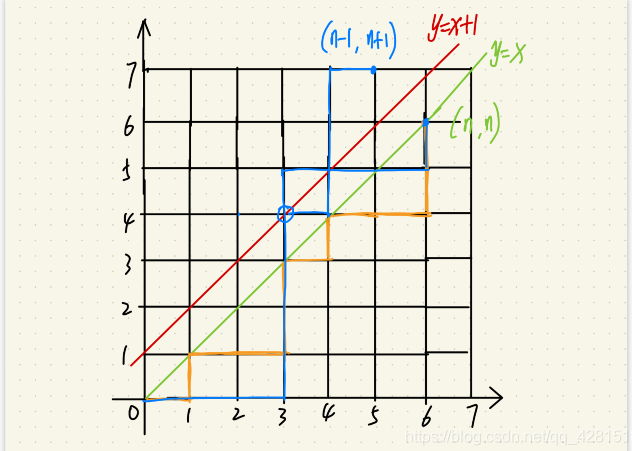 (n-1, n+1)
y=x+1
y=x
(n,n)
7
6
5
4
3
2
1
0 1 2 3 4 5 6 7
https://blog.csdn.net/qq_42815